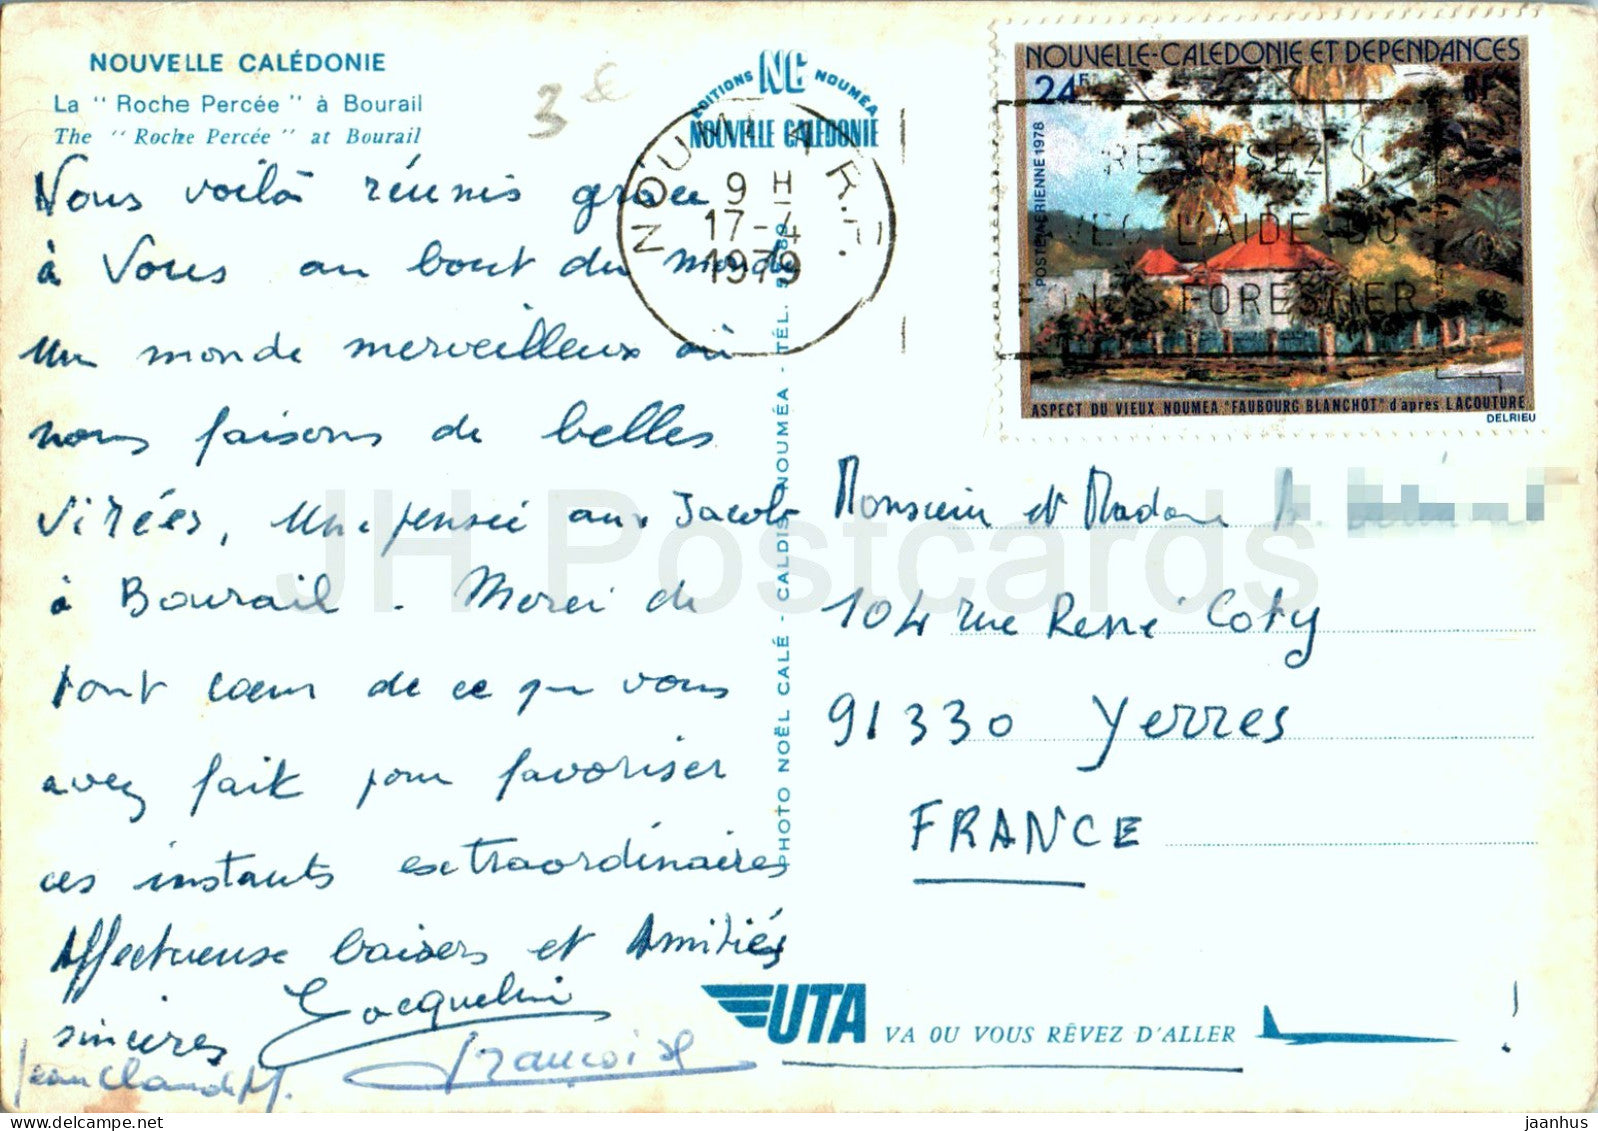 NOUVELLE CALÉDONIE
La " Roche Percée " à Bourail
The " Roche Percée " at Bourail
3
Nous voilà réunis grace
à Vous au bout du monde
un monde merveilleux où
nous faisons de belles
virées, Une pensée aux Jacob
à Bourail. Merci de
tout cœur de ce que vous
avez fait pour favoriser
ces instants extraordinaires
Affectueuse baisers et Amitiés
sincères Jacqueline
Jean Claude M. Françoise
EDITIONS NC NOUMÉA
NOUVELLE CALEDONIE
NOUMEA R.P.
9 H
17-4
1979
PHOTO NOËL CALÉ - CALDIS NOUMÉA - TÉL.
NOUVELLE-CALEDONIE ET DEPENDANCES
24F RF
POSTE AERIENNE 1978
REBOISEZ
AVEC L'AIDE DU
FONDS FORESTIER
ASPECT DU VIEUX NOUMEA "FAUBOURG BLANCHOT" d'après LACOUTURE
DELRIEU
Monsieur et Madame
104 rue René Coty
91330 Yerres
FRANCE
UTA VA OU VOUS RÊVEZ D'ALLER !
JH Postcards
www.delcampe.net
jaanhus